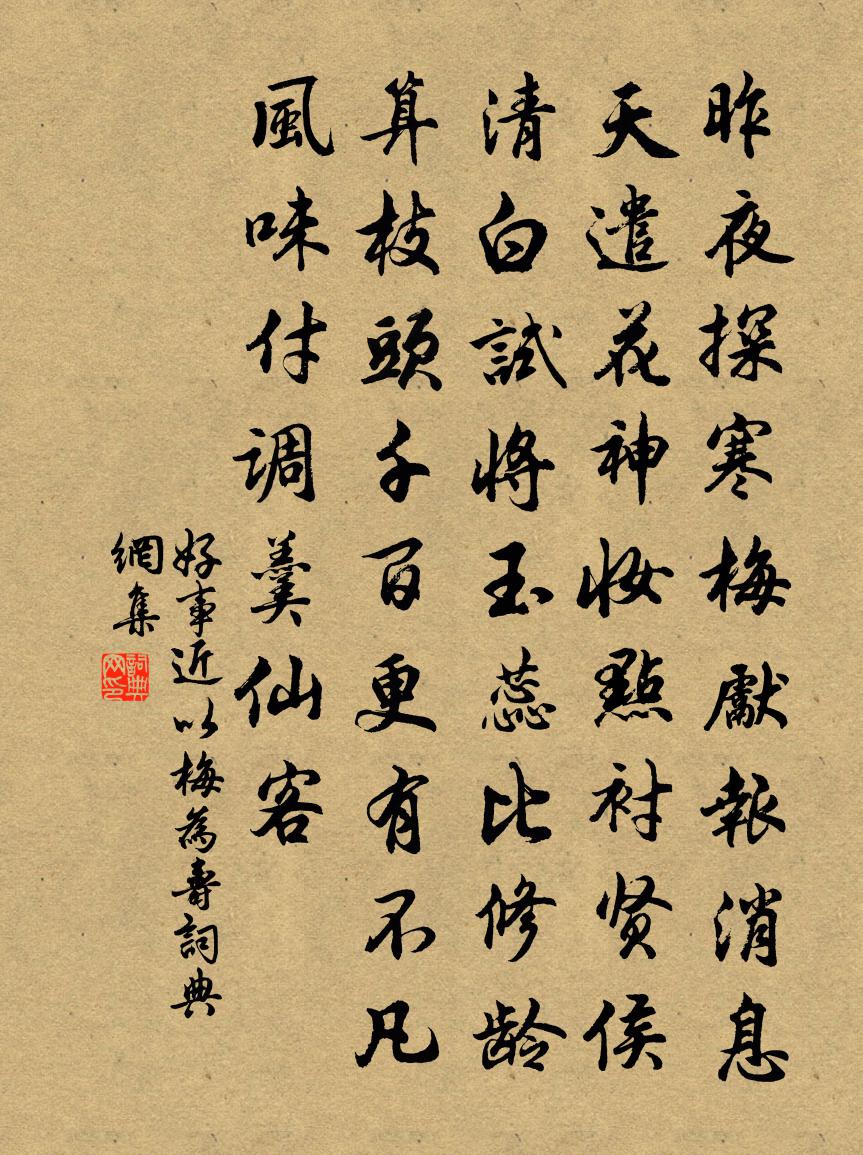 昨夜探寒梅獻報消息
天遣花神妝點衬贤侯
清白試將玉蕊比修龄
算枝頭千百更有不凡
風味付調羹仙客
好事近以梅為壽詞典
網集
詞典网印